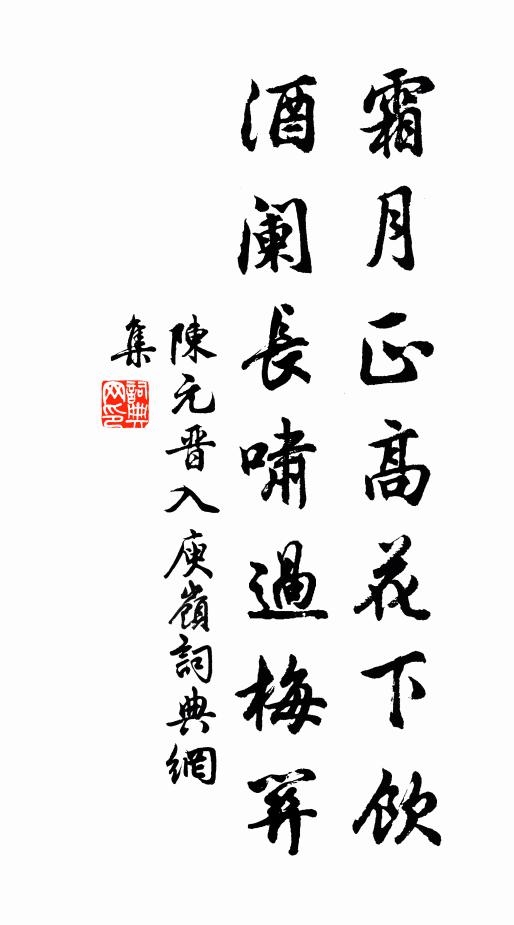 霜月正高花下飲
酒闌長嘯過梅關
陳元晋入庾嶺詞典網
集
詞典网印